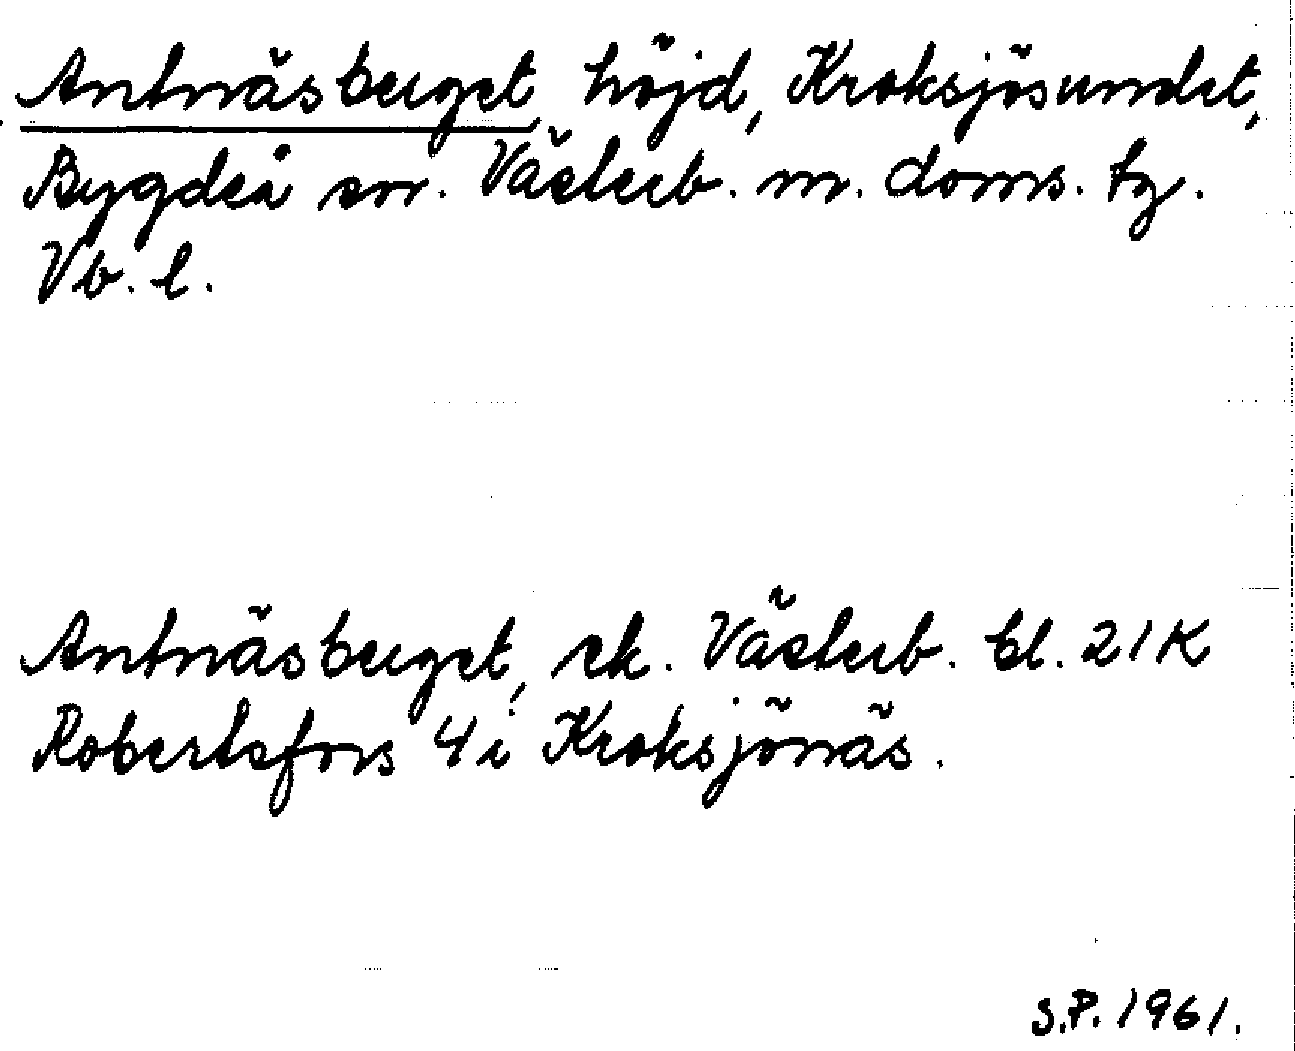 Antnäsberget, höjd, Kroksjösundet,
Bygdeå sn. Västerb. m. doms. tg.
Vb. l.
Antnäsberget, ek. Västerb. bl. 21K
Robertsfors 4i Kroksjönäs.
S.P. 1961.